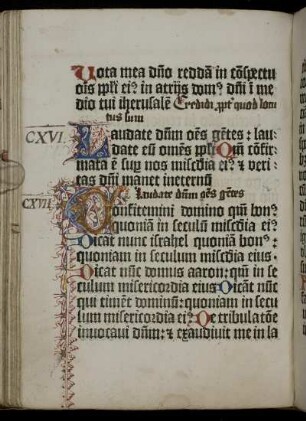 Vota mea dño reddā in cōspectu
oīs ppli ei⁹ in atrijs dom⁹ dñi ī me
dio tui iherusalē Credidi ppt̄ quod locu
tus sum
CXVI Laudate dñm oēs gētes : lau
date eū omēs ppli Qm̄ cōfir
mata ē sup nos mīsc̄dia ei⁹ & veri
tas dñi manet ineternū
Laudate dñm oēs gētes
CXVII Confitemini domino qm̄ bon⁹
quoniā in seculū misc̄dia ei⁹
Dicat nunc israhel quoniā bon⁹ :
quoniam in seculum misc̄dia eius
Dicat nūc domus aaron : qm̄ in se
culum misericordia eius Dicāt nūc
qui timēt dominū : quoniam in secu
lum misericordia ei⁹ De tribulatōe
inuocaui dñm : & exaudiuit me in la